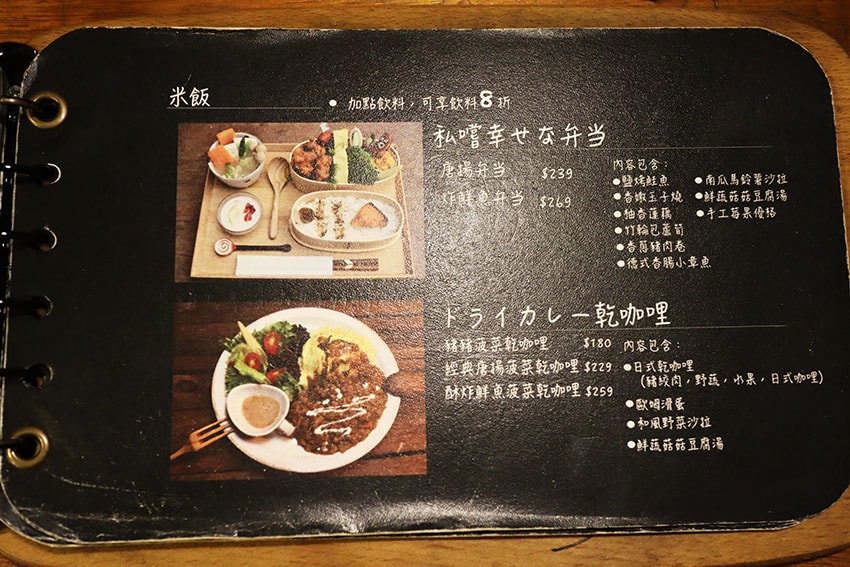 米飯
● 加點飲料，可享飲料8折
私嚐幸せな弁当
唐揚弁当 $239
炸鮮魚弁当 $269
內容包含：
●鹽烤鮭魚
●香嫩玉子燒
●柚香蓮藕
●竹輪包蘆筍
●香蔥豬肉卷
●德式香腸小章魚
●南瓜馬鈴薯沙拉
●鮮蔬菇菇豆腐湯
●手工莓果優格
ドライカレー乾咖哩
豬豬菠菜乾咖哩 $180
經典唐揚菠菜乾咖哩 $229
酥炸鮮魚菠菜乾咖哩 $259
內容包含：
●日式乾咖哩
(豬絞肉，野蔬，水果，日式咖哩)
●歐姆滑蛋
●和風野菜沙拉
●鮮蔬菇菇豆腐湯